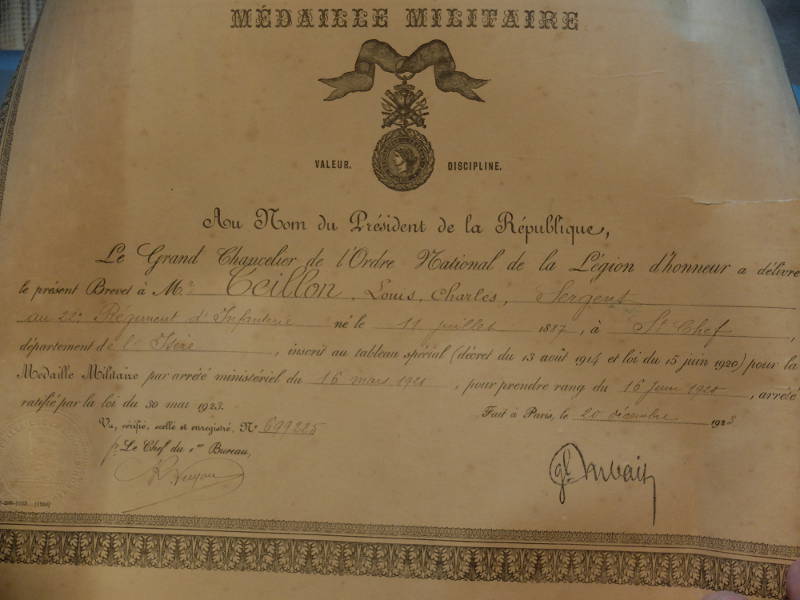 MÉDAILLE MILITAIRE
VALEUR. DISCIPLINE.
Au Nom du Président de la République,
Le Grand Chancelier de l'Ordre National de la Légion d'honneur a délivré
le présent Brevet à Mr Teillon, Louis, Charles, Sergent
au 22e Régiment d'Infanterie né le 11 juillet 1887, à St Chef,
département de l'Isère, inscrit au tableau spécial (décret du 13 août 1914 et loi du 15 juin 1920) pour la
Médaille Militaire par arrêté ministériel du 16 mars 1921, pour prendre rang du 16 Juin 1920, arrêté
ratifié par la loi du 30 mai 1923.
Fait à Paris, le 20 décembre 1923
Vu, vérifié, scellé et enregistré, No 699225
p. Le Chef du 1er Bureau,